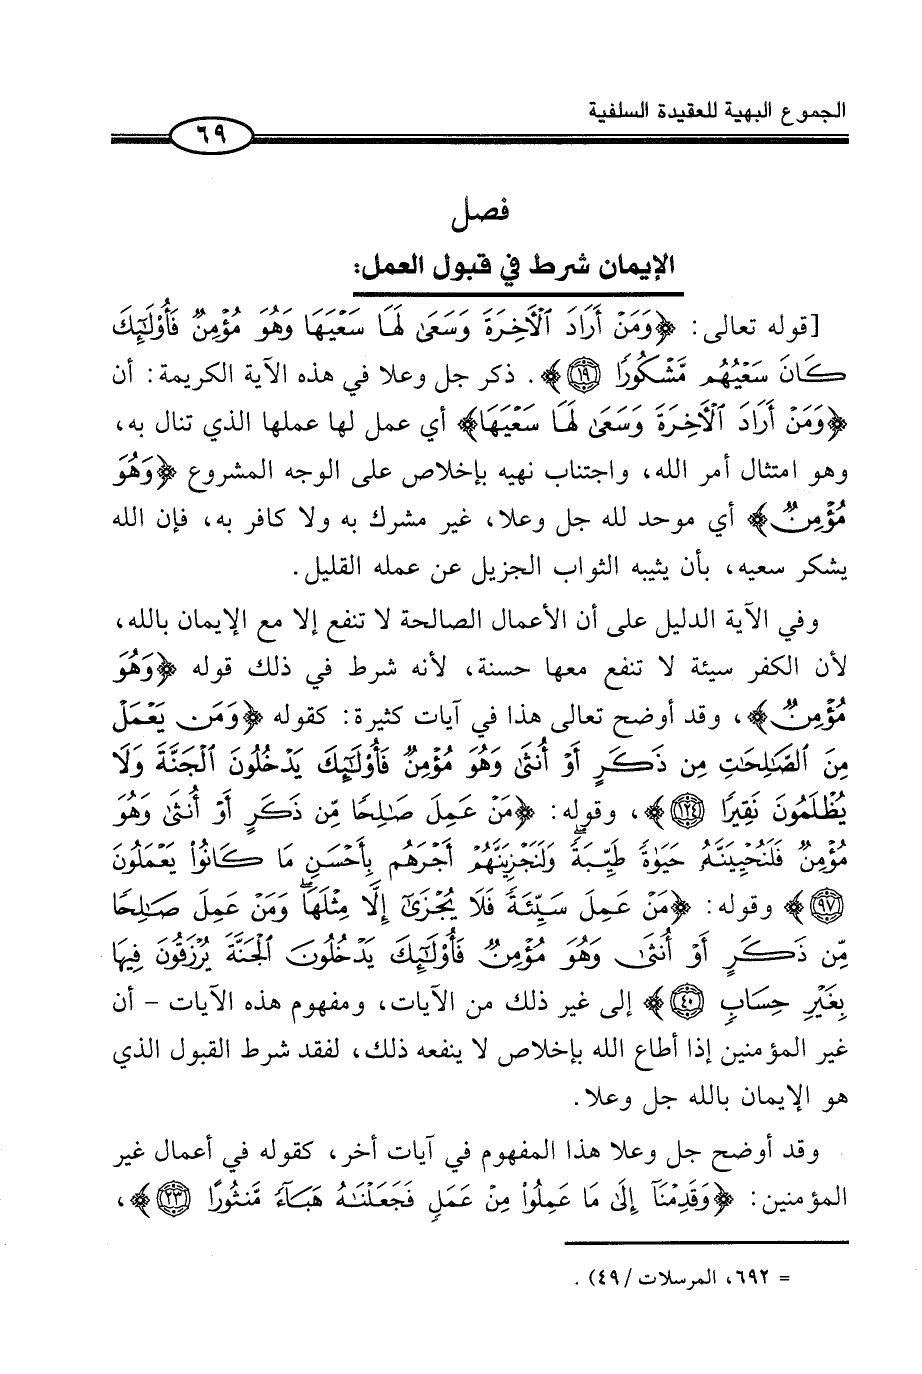 الجموع البهية للعقيدة السلفية
٦٩
فصل
الإيمان شرط في قبول العمل:
[قوله تعالى: ﴿وَمَنْ أَرَادَ ٱلْأَخِرَةَ وَسَعَىٰ لَهَا سَعْيَهَا وَهُوَ مُؤْمِنٌ فَأُوْلَـٰٓئِكَ
كَانَ سَعْيُهُم مَّشْكُورًا ١٩﴾. ذكر جل وعلا في هذه الآية الكريمة: أن
﴿وَمَنْ أَرَادَ ٱلْأَخِرَةَ وَسَعَىٰ لَهَا سَعْيَهَا﴾ أي عمل لها عملها الذي تنال به،
وهو امتثال أمر الله، واجتناب نهيه بإخلاص على الوجه المشروع ﴿وَهُوَ
مُؤْمِنٌ﴾ أي موحد لله جل وعلا، غير مشرك به ولا كافر به، فإن الله
يشكر سعيه، بأن يثيبه الثواب الجزيل عن عمله القليل.
وفي الآية الدليل على أن الأعمال الصالحة لا تنفع إلا مع الإيمان بالله،
لأن الكفر سيئة لا تنفع معها حسنة، لأنه شرط في ذلك قوله ﴿وَهُوَ
مُؤْمِنٌ﴾، وقد أوضح تعالى هذا في آيات كثيرة: كقوله ﴿وَمَن يَعْمَلْ
مِنَ ٱلصَّـٰلِحَـٰتِ مِن ذَكَرٍ أَوْ أُنثَىٰ وَهُوَ مُؤْمِنٌ فَأُوْلَـٰٓئِكَ يَدْخُلُونَ ٱلْجَنَّةَ وَلَا
يُظْلَمُونَ نَقِيرًا ١٢٤﴾، وقوله: ﴿مَنْ عَمِلَ صَـٰلِحًا مِّن ذَكَرٍ أَوْ أُنثَىٰ وَهُوَ
مُؤْمِنٌ فَلَنُحْيِيَنَّهُۥ حَيَوٰةً طَيِّبَةً ۖ وَلَنَجْزِيَنَّهُمْ أَجْرَهُم بِأَحْسَنِ مَا كَانُوا۟ يَعْمَلُونَ
٩٧﴾ وقوله: ﴿مَنْ عَمِلَ سَيِّئَةً فَلَا يُجْزَىٰٓ إِلَّا مِثْلَهَا ۖ وَمَنْ عَمِلَ صَـٰلِحًا
مِّن ذَكَرٍ أَوْ أُنثَىٰ وَهُوَ مُؤْمِنٌ فَأُوْلَـٰٓئِكَ يَدْخُلُونَ ٱلْجَنَّةَ يُرْزَقُونَ فِيهَا
بِغَيْرِ حِسَابٍ ٤٠﴾ إلى غير ذلك من الآيات، ومفهوم هذه الآيات - أن
غير المؤمنين إذا أطاع الله بإخلاص لا ينفعه ذلك، لفقد شرط القبول الذي
هو الإيمان بالله جل وعلا.
وقد أوضح جل وعلا هذا المفهوم في آيات أخر، كقوله في أعمال غير
المؤمنين: ﴿وَقَدِمْنَآ إِلَىٰ مَا عَمِلُوا۟ مِنْ عَمَلٍ فَجَعَلْنَـٰهُ هَبَآءً مَّنثُورًا ٢٣﴾،
= ٦٩٢، المرسلات /٤٩).